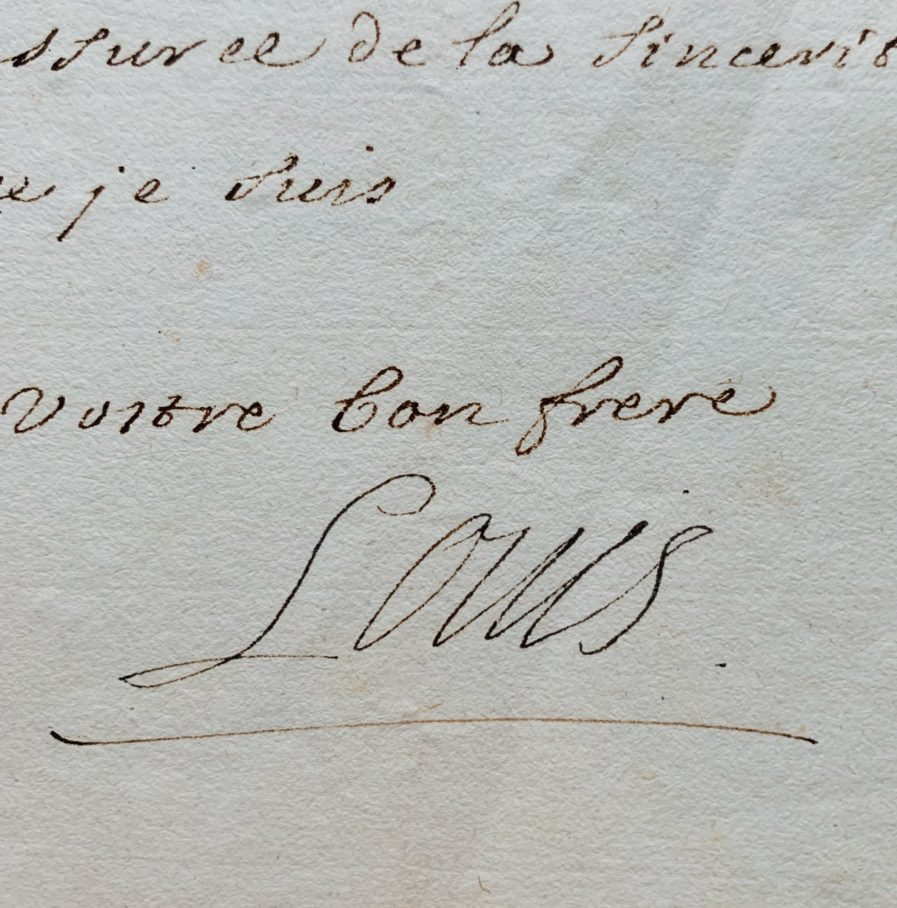 ssuree de la sincerit
ue je suis
Vostre bon frere
Louis